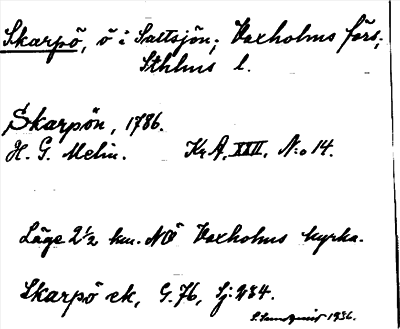 Skarpö, ö i Saltsjön; Vaxholms förs;
Sthlms l.
Skarpön, 1786.
H. G. Melin. Kr A, XXII, N:o 14.
Läge 2 1/2 km. NÖ Vaxholms kyrka.
Skarpö ek, G. 76, Sj: 234.
1936.